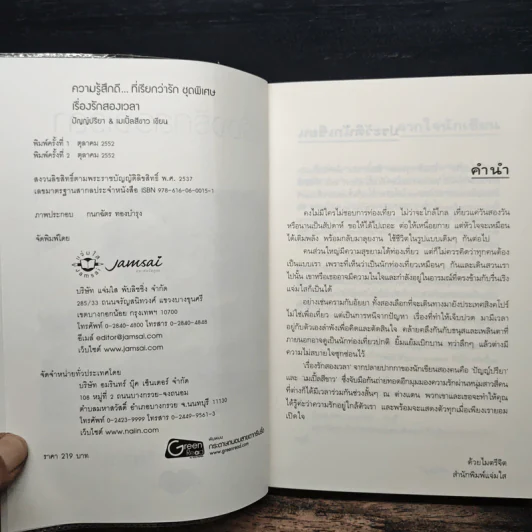 ความรู้สึกดี... ที่เรียกว่ารัก ชุดพิเศษ
เรื่องรักสองเวลา
ปัญญ์ปรียา & เมเปิ้ลสีขาว เขียน
พิมพ์ครั้งที่ 1 ตุลาคม 2552
พิมพ์ครั้งที่ 2 ตุลาคม 2552
สงวนลิขสิทธิ์ตามพระราชบัญญัติลิขสิทธิ์ พ.ศ. 2537
เลขมาตรฐานสากลประจำหนังสือ ISBN 978-616-06-0015-1
ภาพประกอบ กนกฉัตร ทองบำรุง
จัดพิมพ์โดย
jamsai
บริษัท แจ่มใส พับลิชชิ่ง จำกัด
285/33 ถนนจรัญสนิทวงศ์ แขวงบางขุนศรี
เขตบางกอกน้อย กรุงเทพฯ 10700
โทรศัพท์ 0-2840-4800 โทรสาร 0-2840-4848
อีเมล์ editor@jamsai.com
เว็บไซต์ www.jamsai.com
จัดจำหน่ายทั่วประเทศโดย
บริษัท อมรินทร์ บุ๊ค เซ็นเตอร์ จำกัด
108 หมู่ที่ 2 ถนนบางกรวย-จงถนอม
ตำบลมหาสวัสดิ์ อำเภอบางกรวย จ.นนทบุรี 11130
โทรศัพท์ 0-2423-9999 โทรสาร 0-2449-9561-3
เว็บไซต์ www.naiin.com
ราคา 219 บาท
Green
พิมพ์บน
กระดาษถนอมสายตากรีนรี้ด
www.greenread.com
คำนำ
คงไม่มีใครไม่ชอบการท่องเที่ยว ไม่ว่าจะใกล้ไกล เที่ยวแค่วันสองวัน
หรือนานเป็นสัปดาห์ ขอให้ได้ไปเถอะ ต่อให้เหนื่อยกาย แต่หัวใจจะเหมือน
ได้เติมพลัง พร้อมกลับมาลุยงาน ใช้ชีวิตในรูปแบบเดิมๆ กันต่อไป
คนส่วนใหญ่มีความสุขยามได้ท่องเที่ยว แต่ก็ไม่ควรคิดว่าทุกคนต้อง
เป็นแบบเรา เพราะที่เห็นว่าเป็นนักท่องเที่ยวเหมือนๆ กันและเดินสวนเรา
ไปนั้น เขาหรือเธออาจมีความในใจและกำลังอยู่ในอารมณ์ที่ตรงข้ามกับรื่นเริง
แจ่มใสก็เป็นได้
อย่างเช่นความกับอัยยา ทั้งสองเลือกที่จะเดินทางมายังประเทศสิงคโปร์
ไม่ใช่เพื่อเที่ยว แต่เป็นการหนีจากปัญหา เรื่องที่ทำให้เจ็บปวด มามีเวลา
อยู่กับตัวเองลำพังเพื่อคิดและตัดสินใจ คล้ายคลึงกันกับชนุตม์และเพลินตาที่
ภายนอกอาจดูเป็นนักท่องเที่ยวปกติ ยิ้มแย้มเบิกบาน ทว่าลึกๆ แล้วต่างมี
ความไม่สบายใจซุกซ่อนไว้
เรื่องรักสองเวลา จากปลายปากกาของนักเขียนสองคนคือ 'ปัญญ์ปรียา'
และ 'เมเปิ้ลสีขาว' ซึ่งจับมือกันถ่ายทอดอีกมุมมองความรักผ่านหนุ่มสาวสี่คน
ที่ต่างก็ได้มีเวลาร่วมกันช่วงสั้นๆ ณ ต่างแดน พวกเขาและเธอจะทำให้คุณ
ได้รู้ค่าว่าความรักอยู่ใกล้ตัวเรา และพร้อมจะแสดงตัวทุกเมื่อเพียงเรายอม
เปิดใจ
ด้วยไมตรีจิต
สำนักพิมพ์แจ่มใส